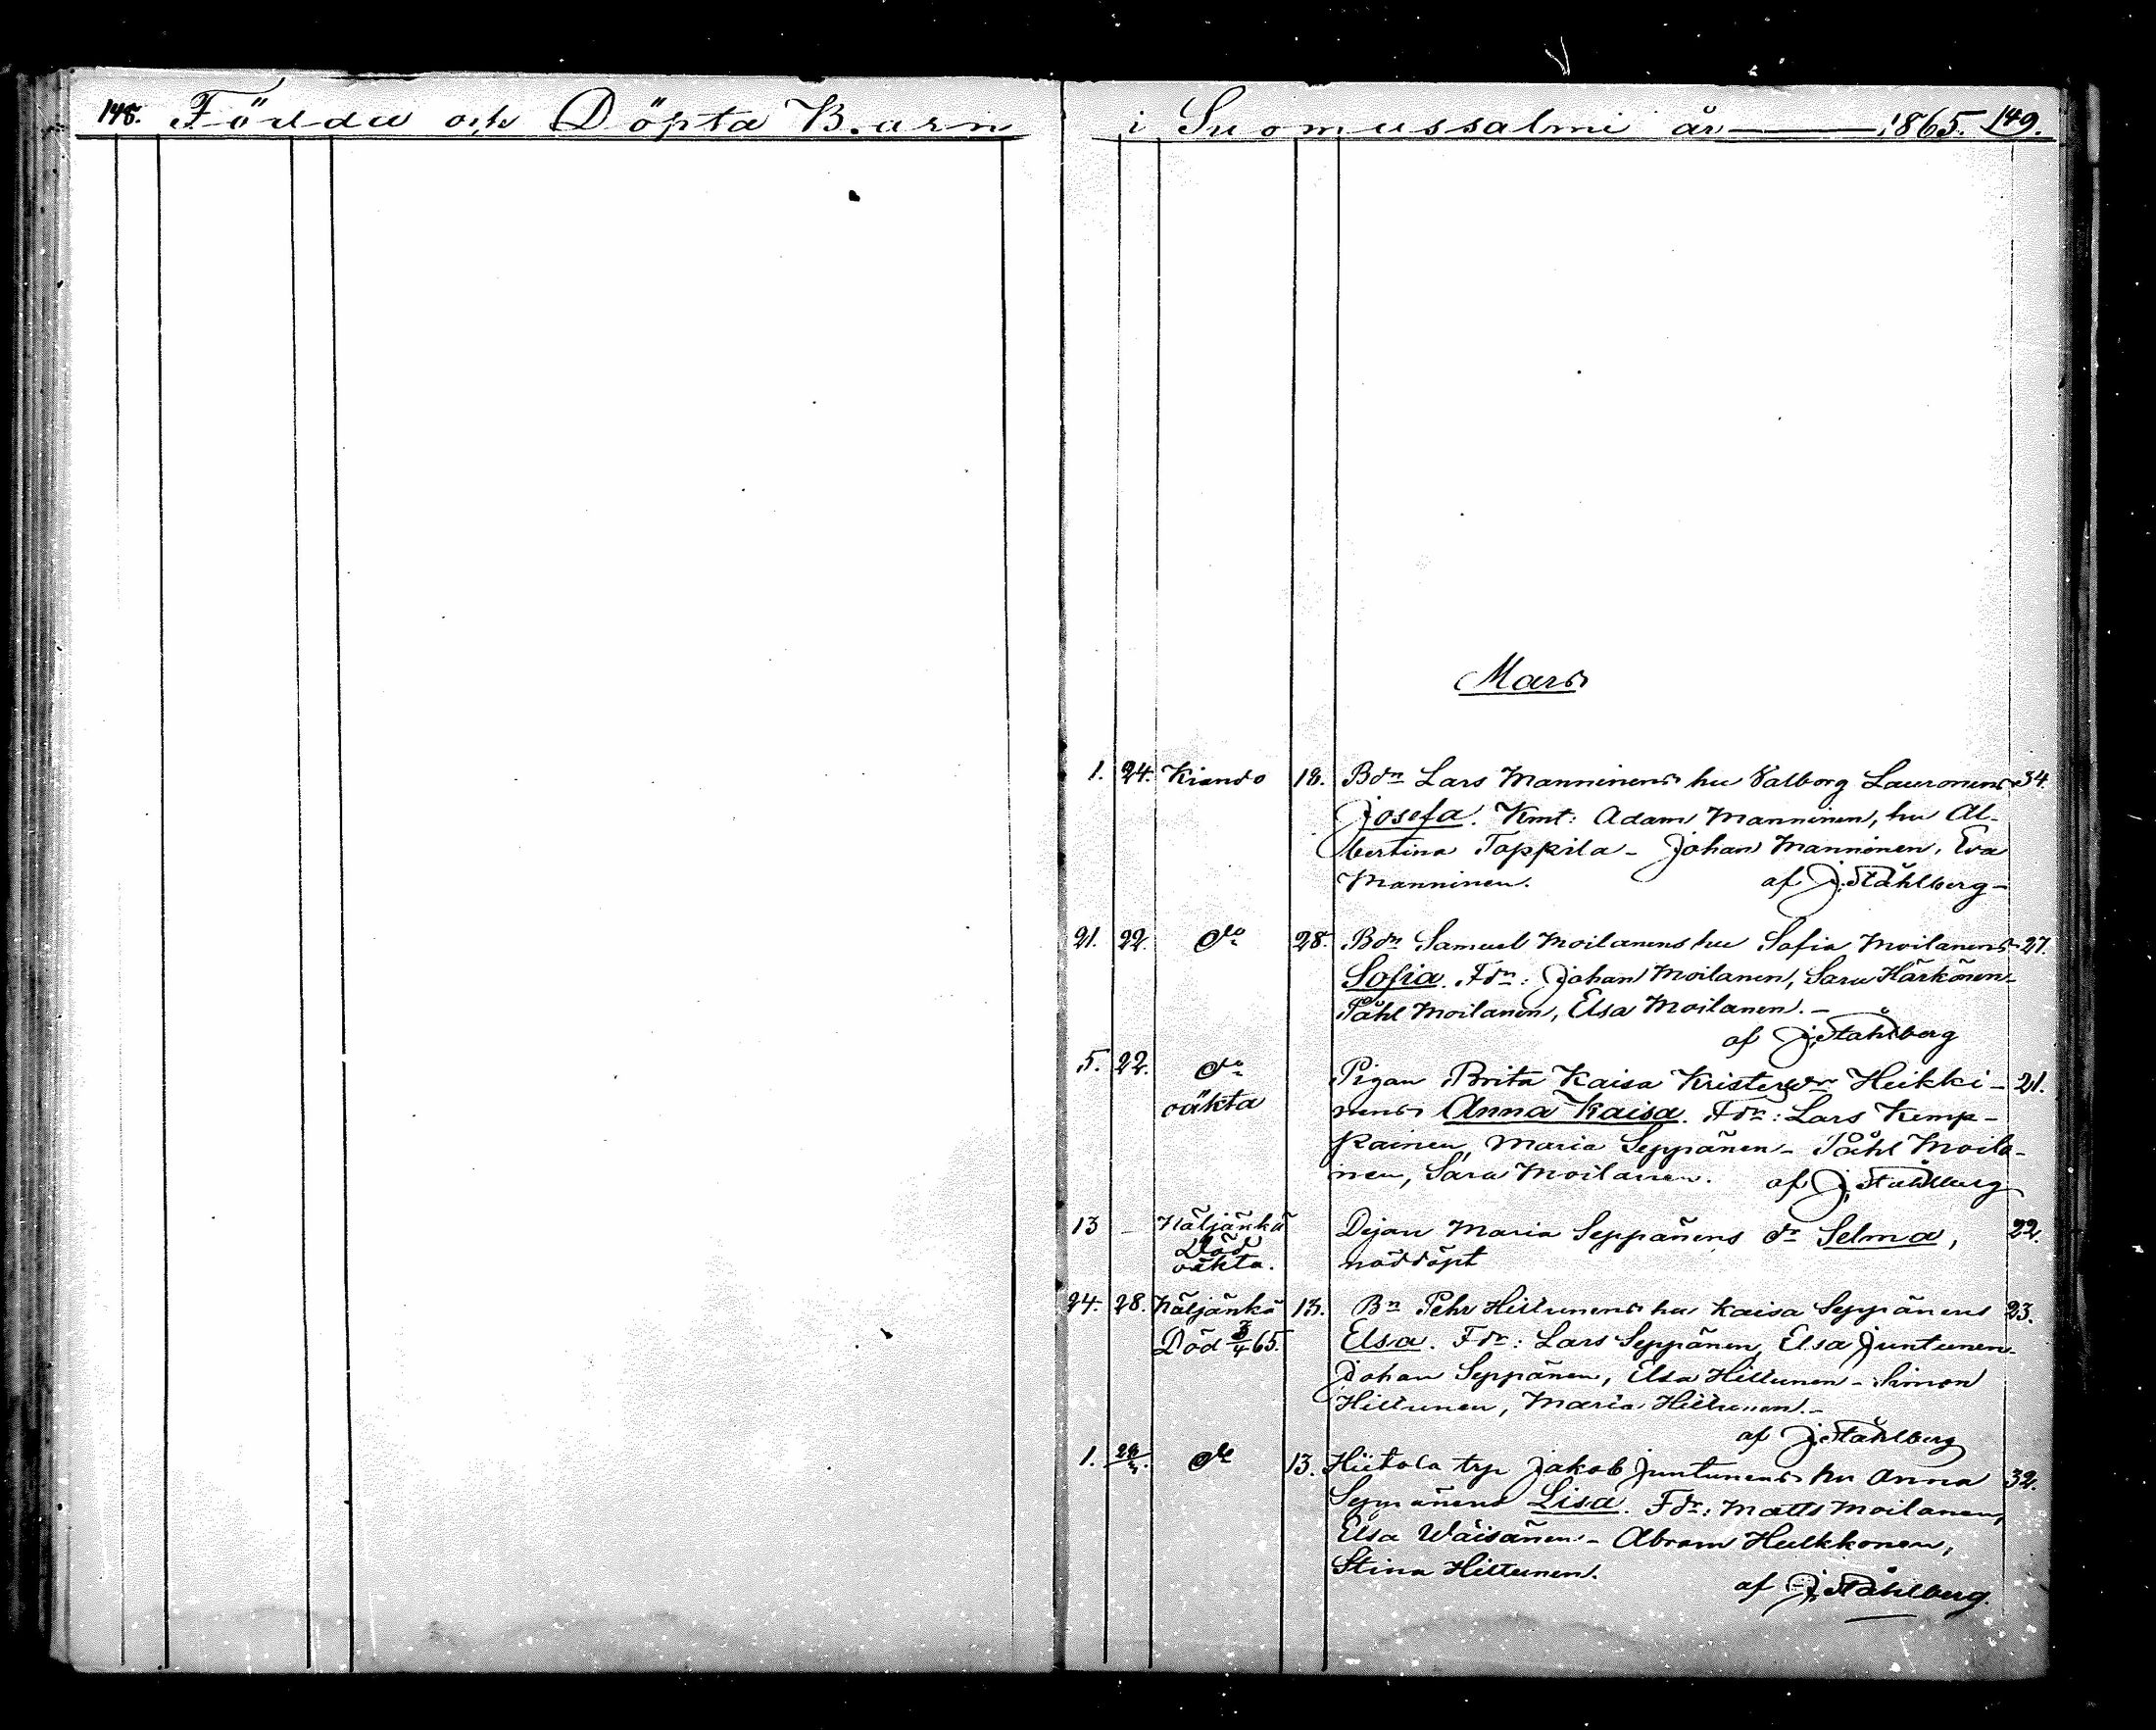 148. Födda och Döpta Barn
i Suomussalmi år 1865. 149.
Mars
1. 24. Kiando 18. Bdn Lars Manninens hu Valborg Lauronens 34.
Josefa. Kmt: Adam Manninen, hu Al-
bertina Toppila - Johan Manninen, Eva
Manninen. af J. Ståhlberg -
21. 22. do 28. Bdn Samuel Moilanens hu Sofia Moilanens 27.
Sofia. Fdr: Johan Moilanen, Sara Härkönen -
Påhl Moilanen, Elsa Moilanen. -
af J. Ståhlberg
5. 22. do Pigan Brita Kaisa Kristersdr Heikki- 21.
oäkta nens Anna Kaisa. Fdr: Lars Kemp-
painen, Maria Seppänen - Påhl Moila-
nen, Sara Moilanen. af J. Ståhlberg
13 - Näljänkä Dejan Maria Seppänens dr Selma, 22.
Död
oäkta. nöddöpt
24. 28. Näljänkä 13. Bn Pehr Hiltunens hu Kaisa Seppänens 23.
Död 3/4 65. Elsa. Fdr: Lars Seppänen, Elsa Juntunen -
Johan Seppänen, Elsa Hiltunen - Simon
Hiltunen, Maria Hiltunen. -
af J. Ståhlberg
1. do 13. Hiitola trp Jakob Juntunens hu Anna 32.
Seppänens Lisa. Fdr: Matts Moilanen,
Elsa Wäisänen - Abram Hulkkonen,
Stina Hiltunen.
af J. Ståhlberg.